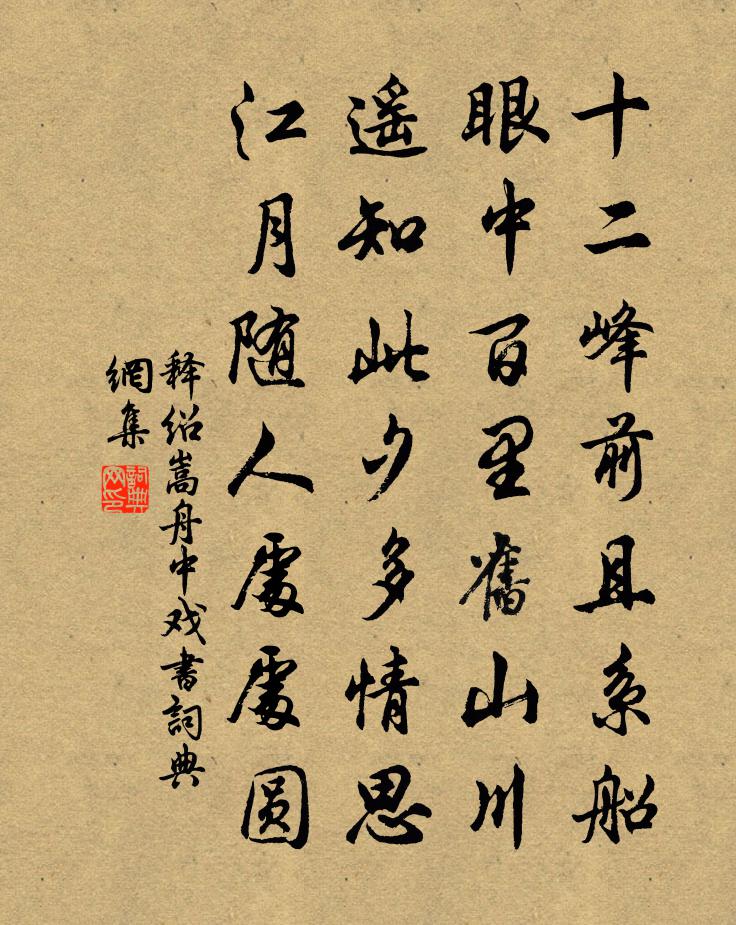 十二峰前且系船
眼中百里旧山川
遥知此夕多情思
江月随人處處圆
释绍嵩舟中戏書詞典
網集
詞典
网印